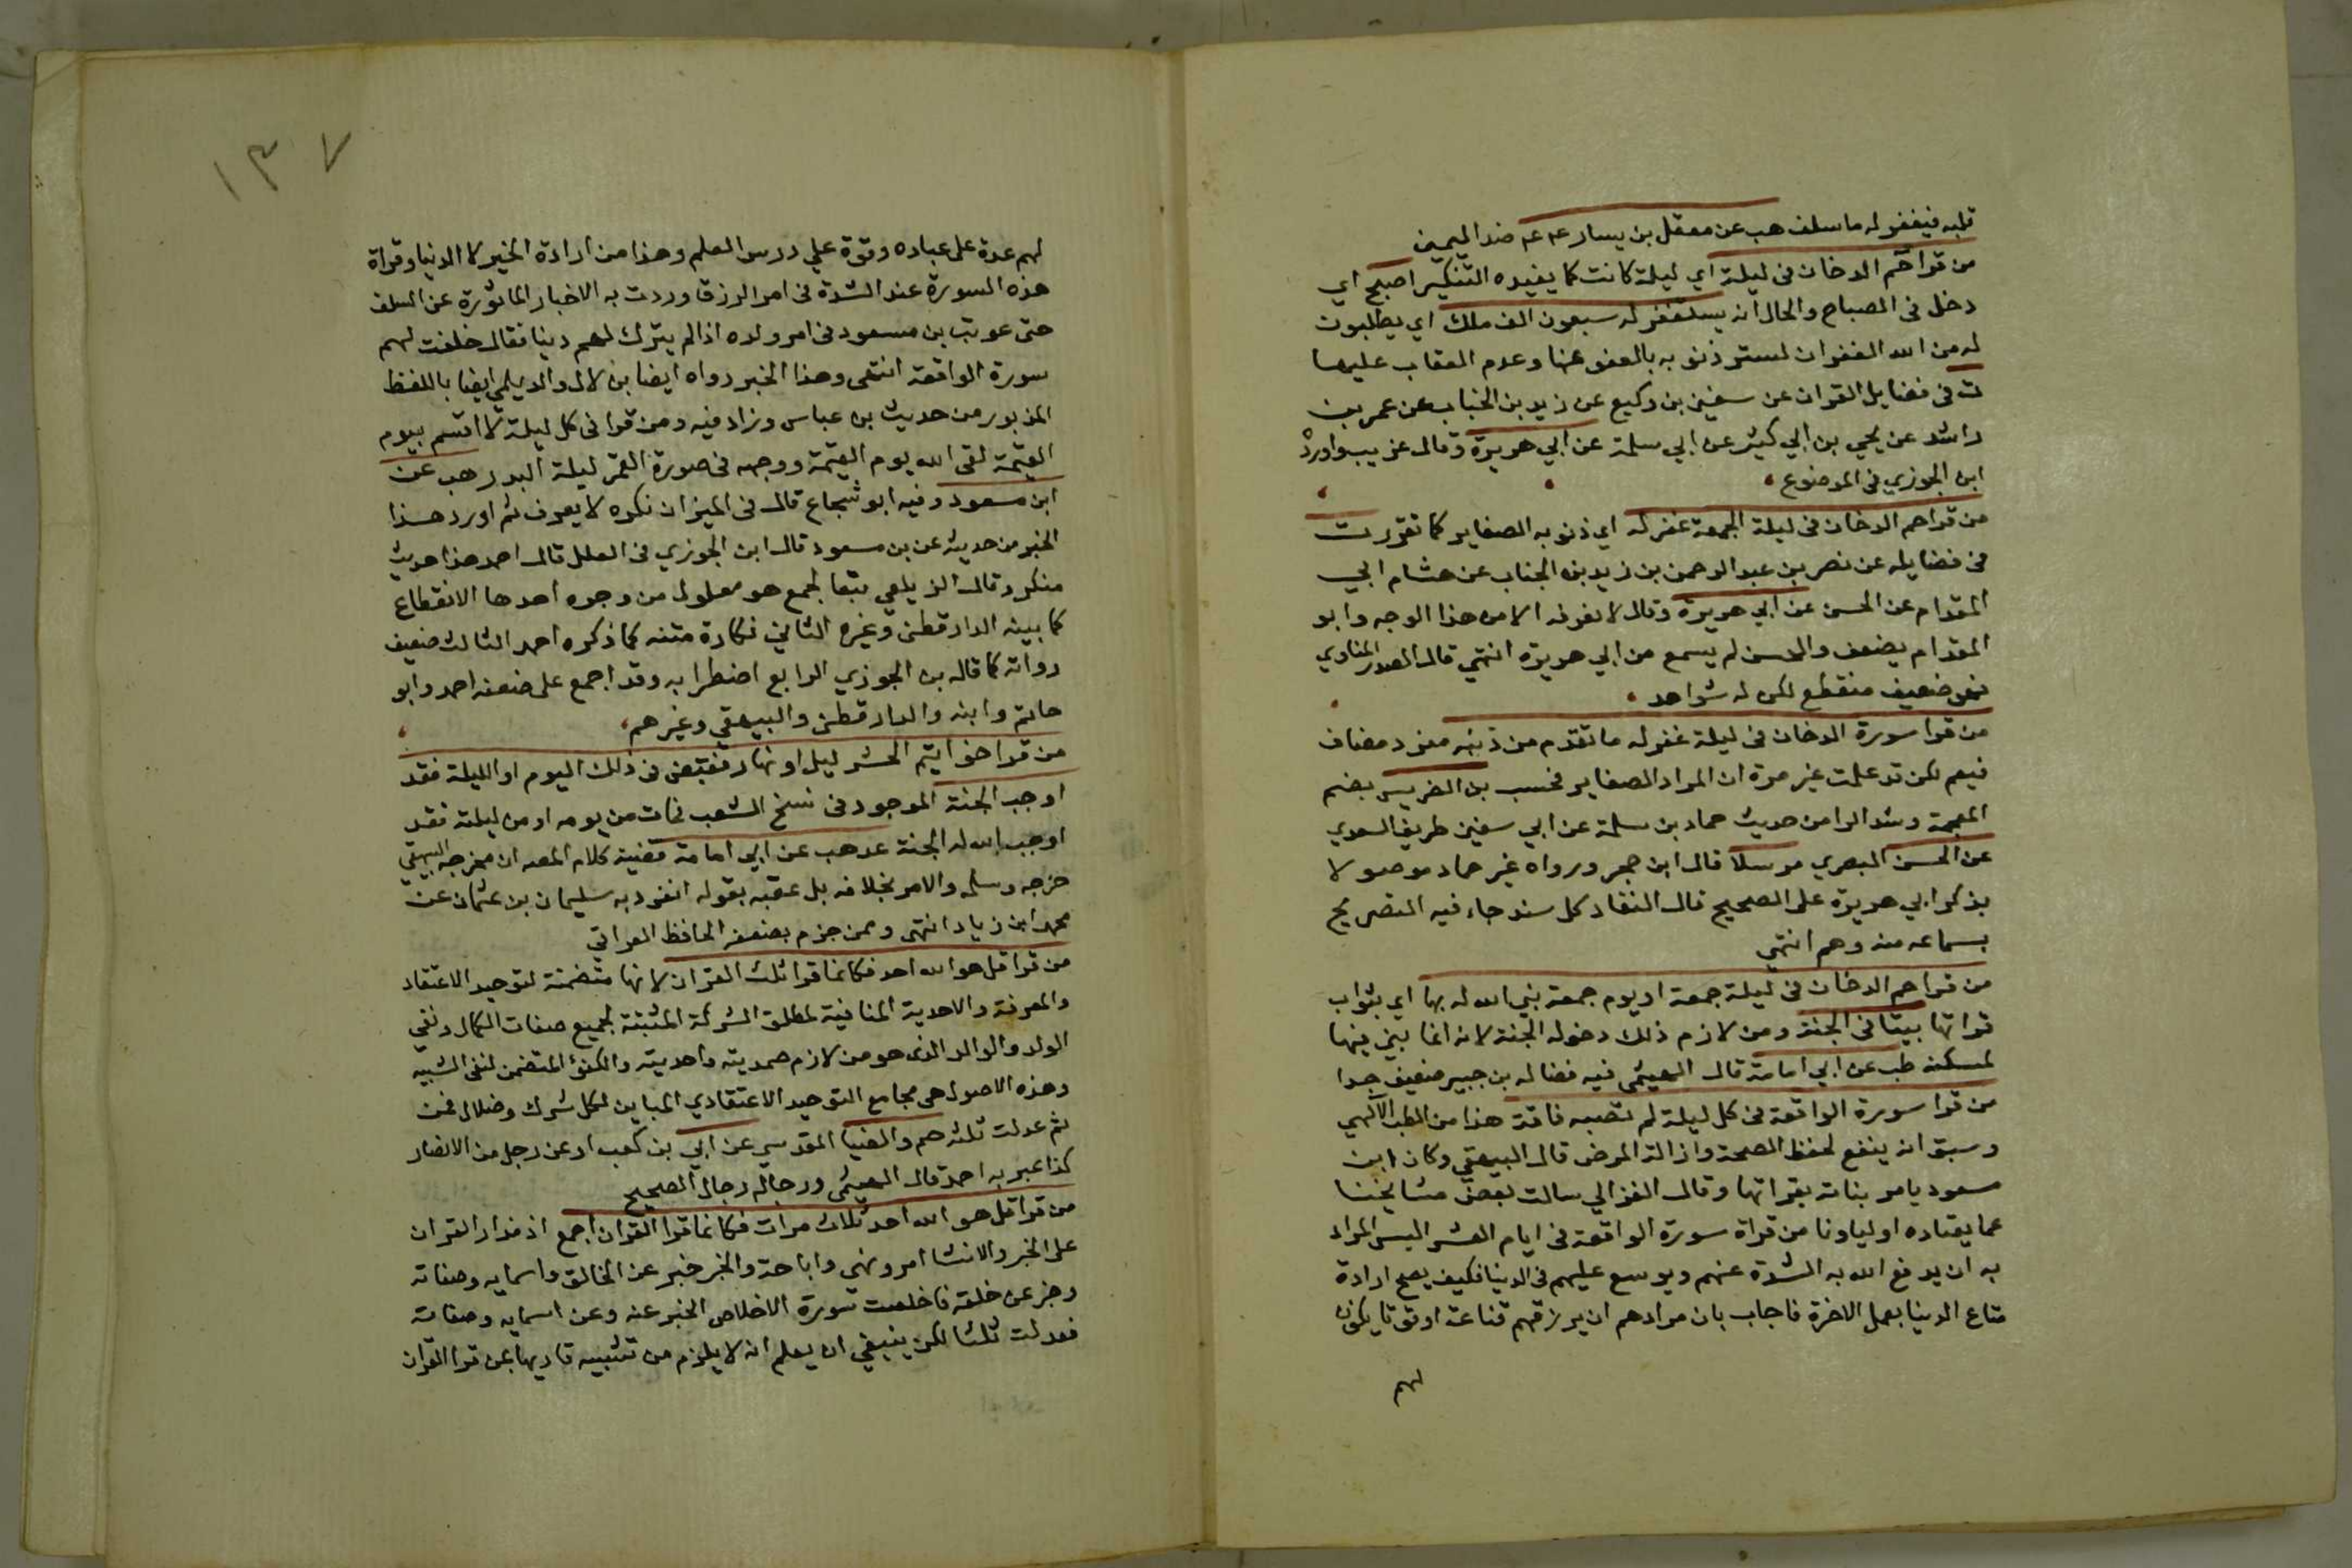 قلبه فيغفر له ما سلف هب عن معقل بن يسار ضد اليمين
من قرا حم الدخان في ليلة اي ليلة كانت كما يفيده التنكير اصبح اي
دخل في الصباح والحال انه يستغفر له سبعون الف ملك اي يطلبون
له من الله الغفران لستر ذنوبه بالعفو عنها وعدم العقاب عليها
ت في فضايل القران عن سفين بن وكيع عن زيد بن الخباب عن عمر بن
راشد عن يحي بن ابي كثير عن ابي سلمة عن ابي هريرة وقال غريب واورده
ابن الجوزي في الموضوع
من قرا حم الدخان في ليلة الجمعة غفر له اي ذنوبه الصغاير كما تقرر ت
في فضايله عن نصر بن عبد الرحمن بن زيد بن الجناب عن هشام ابي
المقدام عن الحسن عن ابي هريرة وقال لا نعرفه الا من هذا الوجه وابو
المقدام يضعف والحسن لم يسمع من ابي هريرة انتهي قال الصدر المناوي
فهو ضعيف منقطع لكن له شواهد
من قرا سورة الدخان في ليلة غفر له ما تقدم من ذنبه مفرد مضاف
فيعم لكن قد علمت غير مرة ان المراد الصغاير فحسب بن الضريس بضم
المعجمة وشد الرا من حديث حماد بن سلمة عن ابي سفين طريف السعدي
عن الحسن البصري مرسلا قال ابن حجر ورواه غير حماد موصولا
بذكر ابي هريرة علي الصحيح قال النقاد كل سند جاء فيه التصريح
بسماعه منه وهم انتهي
من قرا حم الدخان في ليلة جمعة او يوم جمعة بني الله له بها اي بثواب
قراتها بيتا في الجنة ومن لازم ذلك دخوله الجنة لانه انما يبني فيها
لمسكنه طب عن ابي امامة قال الهيثمي فيه فضاله بن جبير ضعيف جدا
من قرا سورة الواقعة في كل ليلة لم تصبه فاقة هذا من الطب الالهي
وسبق انه ينفع لحفظ الصحة وازالة المرض قال البيهقي وكان ابن
مسعود يامر بناته بقراتها وقال الغزالي سالت بعض مشايخنا
عما يعتاده اولياونا من قراة سورة الواقعة في ايام العشر اليس المراد
به ان يدفع الله به الشدة عنهم ويوسع عليهم في الدنيا فكيف يصح ارادة
متاع الدنيا بعمل الاخرة فاجاب بان مرادهم ان يرزقهم قناعة او قوتا يكون
لهم
١٣٧
لهم عدة علي عباده وقوة علي درس العلم وهذا من ارادة الخير لا الدنيا وقراة
هذه السورة عند الشدة في امر الرزق وردت به الاخبار الماثورة عن السلف
حتي عوتب بن مسعود في امر ولده اذ لم يترك لهم دينا فقال خلفت لهم
سورة الواقعة انتهي وهذا الخبر رواه ايضا بن لال والديلمي ايضا باللفظ
المزبور من حديث بن عباس وزاد فيه ومن قرا في كل ليلة لا اقسم بيوم
القيمة لقي الله يوم القيمة ووجهه في صورة القمر ليلة البدر هب عن
ابن مسعود وفيه ابو شجاع قال في الميزان نكره لا يعرف ثم اورد هذا
الخبر من حديثه عن بن مسعود قال ابن الجوزي في العلل قال احمد هذا حديث
منكر وقال الزيلعي تبعا لجمع هو معلول من وجوه احدها الانقطاع
كما بينه الدارقطني وغيره الثاني نكارة متنه كما ذكره احمد الثالث ضعيف
رواته كما قاله بن الجوزي الرابع اضطرابه وقد اجمع علي ضعفه احمد وابو
حاتم وابنه والدارقطني والبيهقي وغيرهم
من قرا خواتيم الحشر ليل او نهار فقبض في ذلك اليوم او الليلة فقد
اوجب الجنة الموجود في نسخ الشعب فمات من يومه او من ليلته فقد
اوجب الله له الجنة عد هب عن ابي امامة قضية كلام المص ان مخرجه البيهقي
خرجه وسلمه والامر بخلافه بل عقبه بقوله انفرد به سليمان بن عثمان عن
محمد ابن زياد انتهي وممن جزم بضعفه الحافظ العراقي
من قرا قل هو الله احد فكانما قرا ثلث القران لانها متضمنة لتوحيد الاعتقاد
والمعرفة والاحدية المنافية لمطلق الشركة المثبتة لجميع صفات الكمال ونفي
الولد والوالد الذي هو من لازم صمديته واحديته والكفؤ المتضمن لنفي الشبيه
وهذه الاصول هي مجامع التوحيد الاعتقادي المباين لكل شرك وضلال فمن
ثم عدلت ثلثه حم والضيا المقدسي عن ابي بن كعب او عن رجل من الانصار
كذا عبر به احمد قال الهيثمي ورجاله رجال الصحيح
من قرا قل هو الله احد ثلاث مرات فكانما قرا القران اجمع اذ مدار القران
علي الخبر والانشا امر ونهي واباحة والخبر خبر عن الخالق واسمايه وصفاته
وخبر عن خلقه فاخلصت سورة الاخلاص الخبر عنه وعن اسمايه وصفاته
فعدلت ثلثا لكن ينبغي ان يعلم انه لا يلزم من تشبيه قاريها بمن قرا القران